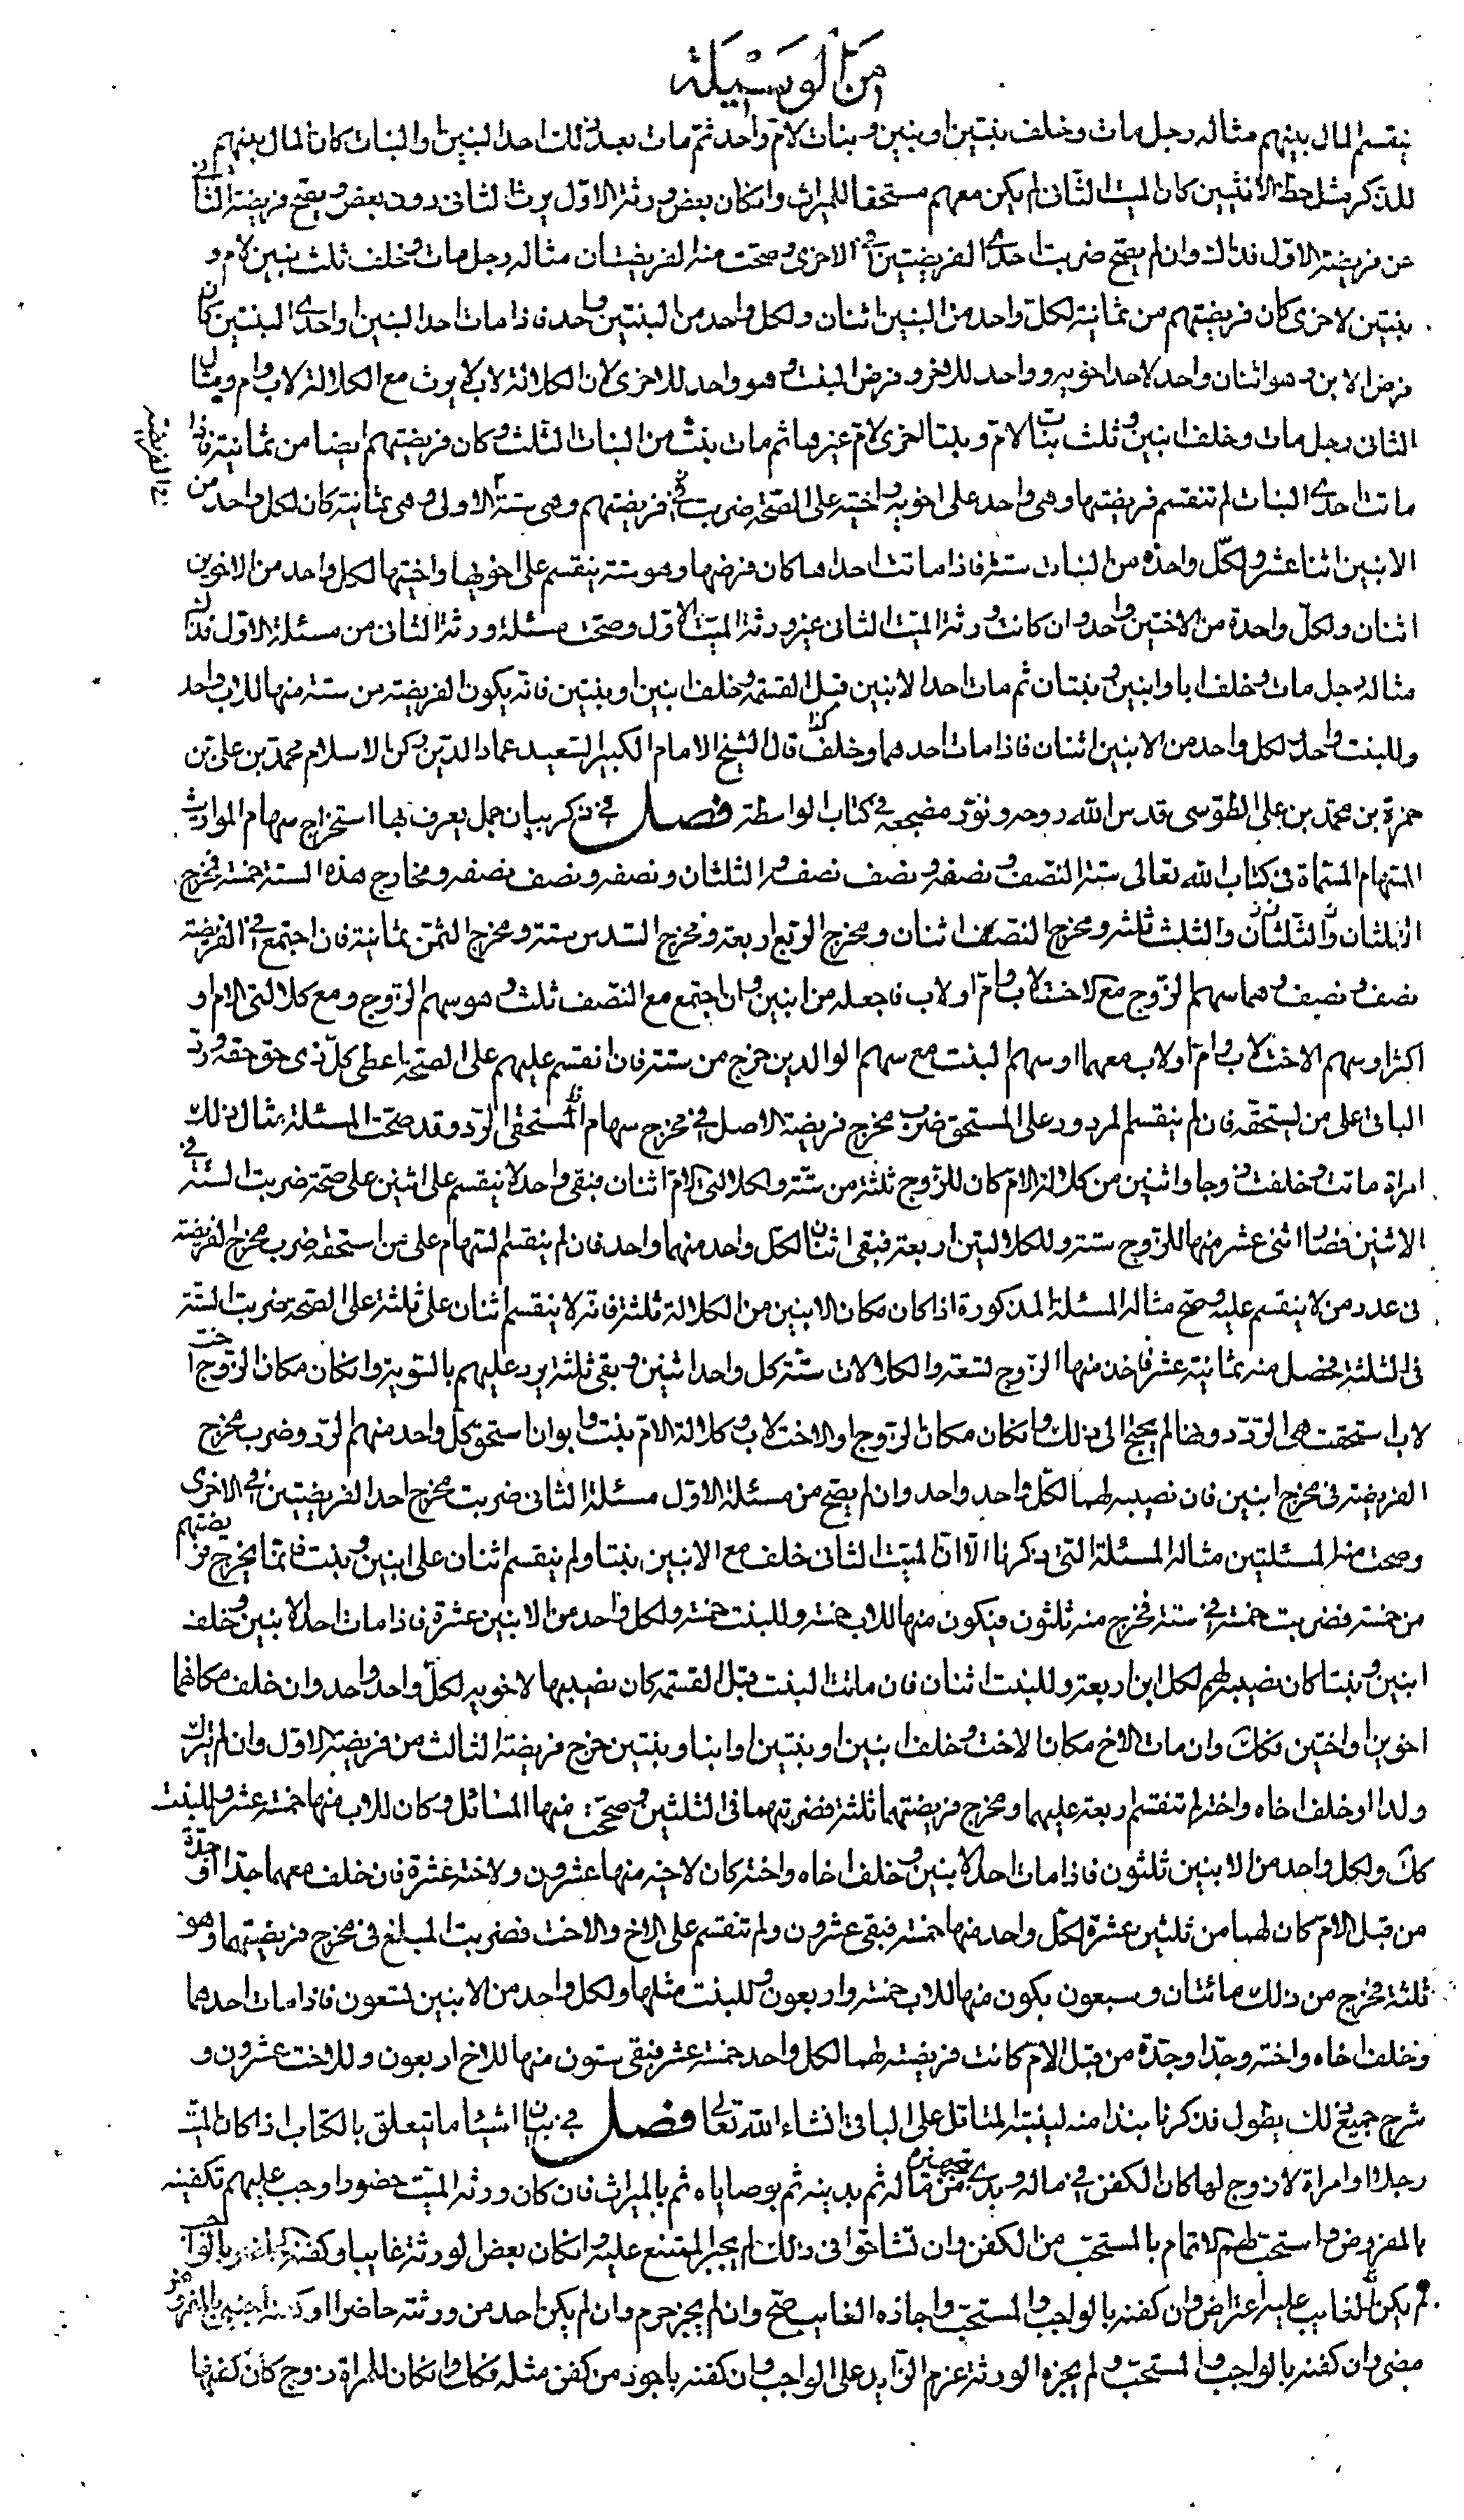 من الوسيلة
ينقسم المال بينهم مثاله رجل مات وخلف بنتين او بنين و بنات لام واحد ثم مات بعد ذلك احد البنين او البنات كان المال بينهم
للذكر مثل حظ الانثيين كان الميت الثاني لم يكن معهم مستحقا للميراث وان كان بعض ورثة الاول يرث الثاني دون بعض و يصح فريضة الثاني
من فريضة الاول فذاك وان لم يصح ضربت احدى الفريضتين في الاخرى و صحت منه الفريضتان مثاله رجل مات و خلف ثلث بنين لام و
بنتين لاخرى كان فريضتهم من ثمانية لكل واحد من البنين اثنان ولكل واحد من البنتين واحد فاذا مات احد البنين او احدى البنتين كان
فرض الابن و هو اثنان واحد لاحد اخويه و واحد للاخر و فرض البنت و هو واحد للاخرى لان الكلالة لاب لا يرث مع الكلالة لاب وام ومثال
الثاني رجل مات وخلف ابنين و ثلث بنات لام و بنتا اخرى لام غيرها ثم مات بنت من البنات الثلث و كان فريضتهم ايضا من ثمانية فاذا
ماتت احدى البنات لم تنقسم فريضتها وهي واحد على اخويه واختيه على الصحة ضربت فريضتهم وهي ستة في الاولى و هي ثمانية كان لكل واحد من
الابنين اثنا عشر ولكل واحدة من البنات ستة فاذا ماتت احداها كان فرضها وهو ستة ينقسم على اخويها واختيها لكل واحد من الاخوين
اثنان ولكل واحدة من الاختين واحد وان كانت ورثة الميت الثاني غير ورثة الميت الاول وصحت مسئلة ورثة الثاني من مسئلة الاول فذاك
مثاله رجل مات وخلف ابا وابنين و بنتان ثم مات احد الابنين قبل القسمة وخلف ابنين او بنتين فانه يكون الفريضة من ستة منها للاب واحد
وللبنت واحد لكل واحد من الابنين اثنان فاذا مات احدهما وخلف كذا قال الشيخ الامام الكبير السعيد عماد الدين ركن الاسلام محمد بن علي بن
حمزة بن محمد بن علي الطوسي قدس الله روحه ونور مضجعه في كتاب الواسطة فصل في ذكر بيان جمل يعرف بها استخراج سهام المواريث
السهام المسماة في كتاب الله تعالى ستة النصف و نصفه و نصف نصفه و الثلثان و نصفه و نصف نصفه و مخارج هذه الستة خمسة فمخرج
الثلثان والثلث ثلثة و مخرج النصف اثنان و مخرج الربع اربعة و مخرج السدس ستة و مخرج الثمن ثمانية فان اجتمع في الفريضة
نصف و نصف و هما سهم الزوج مع الاخت لاب وام او لاب فاجعله من اثنين وان اجتمع مع النصف ثلث و هو سهم الزوج ومع كلالتي الام او
اكثر او سهم الاخت لاب وام او لاب معهما او سهم البنت مع سهم الوالدين خرج من ستة فان انقسم عليهم على الصحة اعطى كل ذي حق حقه و رد
الباقي على من يستحقه فان لم ينقسم المردود على المستحق ضرب مخرج فريضة الاصل في مخرج سهام المستحق الرد وقد صحت المسئلة مثال ذلك
امراة ماتت و خلفت زوجا واثنين من كلالة الام كان للزوج ثلثة من ستة ولكلالتي الام اثنان فبقى واحد لا ينقسم على اثنين على صحة ضربت الستة في
الاثنين فصار اثنى عشر منها للزوج ستة وللكلالتين اربعة فبقى اثنان لكل واحد منهما واحد فان لم ينقسم السهام على من استحقه ضرب مخرج الفريضة
في عدد من لا ينقسم عليه وصح مثاله المسئلة المذكورة اذا كان مكان الاثنين من الكلالة ثلثة فانه لا ينقسم اثنان على ثلثة على الصحة ضربت الستة
في الثلثة فحصل منه ثمانية عشر فاخذ منها الزوج تسعة والكلالات ستة كل واحد اثنين و بقى ثلثة يرد عليهم بالسوية وان كان مكان الزوج اخت
لاب استحقت هي الرد دونها لم يحتج الى ذلك وان كان مكان الزوج او الاخت لاب و كلالة الام بنت وابوان استحق كل واحد منهم الرد وضرب مخرج
الفريضة في مخرج اثنين فان نصيبه لهما لكل واحد واحد وان لم يصح من مسئلة الاول مسئلة الثاني ضربت مخرج احد الفريضتين في الاخرى
وصحت منه المسئلتين مثاله المسئلة التي ذكرنا الا ان الميت الثاني خلف مع الابنين بنتا ولم ينقسم اثنان على ابنين و بنت فانما يخرج فريضتهم
من خمسة فضربت خمسة في ستة فخرج منه ثلثون فيكون منها للاب خمسة وللبنت خمسة ولكل واحد من الابنين عشرة فاذا مات احد الابنين و خلف
ابنين و بنتا كان نصيبه لهم لكل ابن اربعة وللبنت اثنان فان ماتت البنت قبل القسمة كان نصيبها لاخويه لكل واحد واحد وان خلف مكانهما
اخوين او اختين فكك وان مات الاخ مكان الاخت و خلف ابنين او بنتين او ابنا و بنتين خرج فريضة الثالث من فريضة الاول وان لم يترك
ولدا او خلف اخاه واخته لم تنقسم اربعة عليهما و مخرج فريضتهما ثلثة فضربتهما في الثلثين و صحت منها المسائل و كان للاب منها خمسة عشر وللبنت
كك ولكل واحد من الابنين ثلثون فاذا مات احد الابنين و خلف اخاه واخته كان لاخيه منها عشرون ولاخته عشرة فان خلف معهما جدا او جدة
من قبل الام كان لهما من ثلثين عشرة لكل واحد منها خمسة فبقى عشرون ولم تنقسم على الاخ والاخت فضربت المبلغ في مخرج فريضتهما وهو
ثلثة فخرج من ذلك مائتان وسبعون يكون منها للاب خمسة واربعون وللبنت مثلها ولكل واحد من الابنين تسعون فاذا مات احدهما
وخلف اخاه واخته وجدا وجدة من قبل الام كانت فريضته لهما لكل واحد خمسة عشر فبقى ستون منها للاخ اربعون وللاخت عشرون و
شرح جميع ذلك يطول فذكرنا نبذا منه لينبه المتامل على الباقي انشاء الله تعالى فصل في بيان اشياء ما يتعلق بالكتاب اذا كان الميت
رجلا او امراة لا زوج لها كان الكفن في ماله و بدى بتجهيزه من ماله ثم بدينه ثم بوصاياه ثم بالميراث فان كان ورثة الميت حضورا وجب عليهم تكفينه
بالمفروض واستحب لهم الاتمام بالمستحب من الكفن وان تشاحوا في ذلك لم يجبر الممتنع عليه وان كان بعض الورثة غايبا وكفنه الحاضر بالواجب
لم يكن للغايب عليه اعتراض وان كفنه بالواجب والمستحب واجازه الغايب صح وان لم يجز حرم وان لم يكن احد من ورثته حاضرا او كفنه اجنبي بالمفروض
مضى وان كفنه بالواجب والمستحب و لم يجزه الورثة غرم الزايد على الواجب وان كفنه باجود من كفن مثله فكك وان كان للمراة زوج كان كفنها